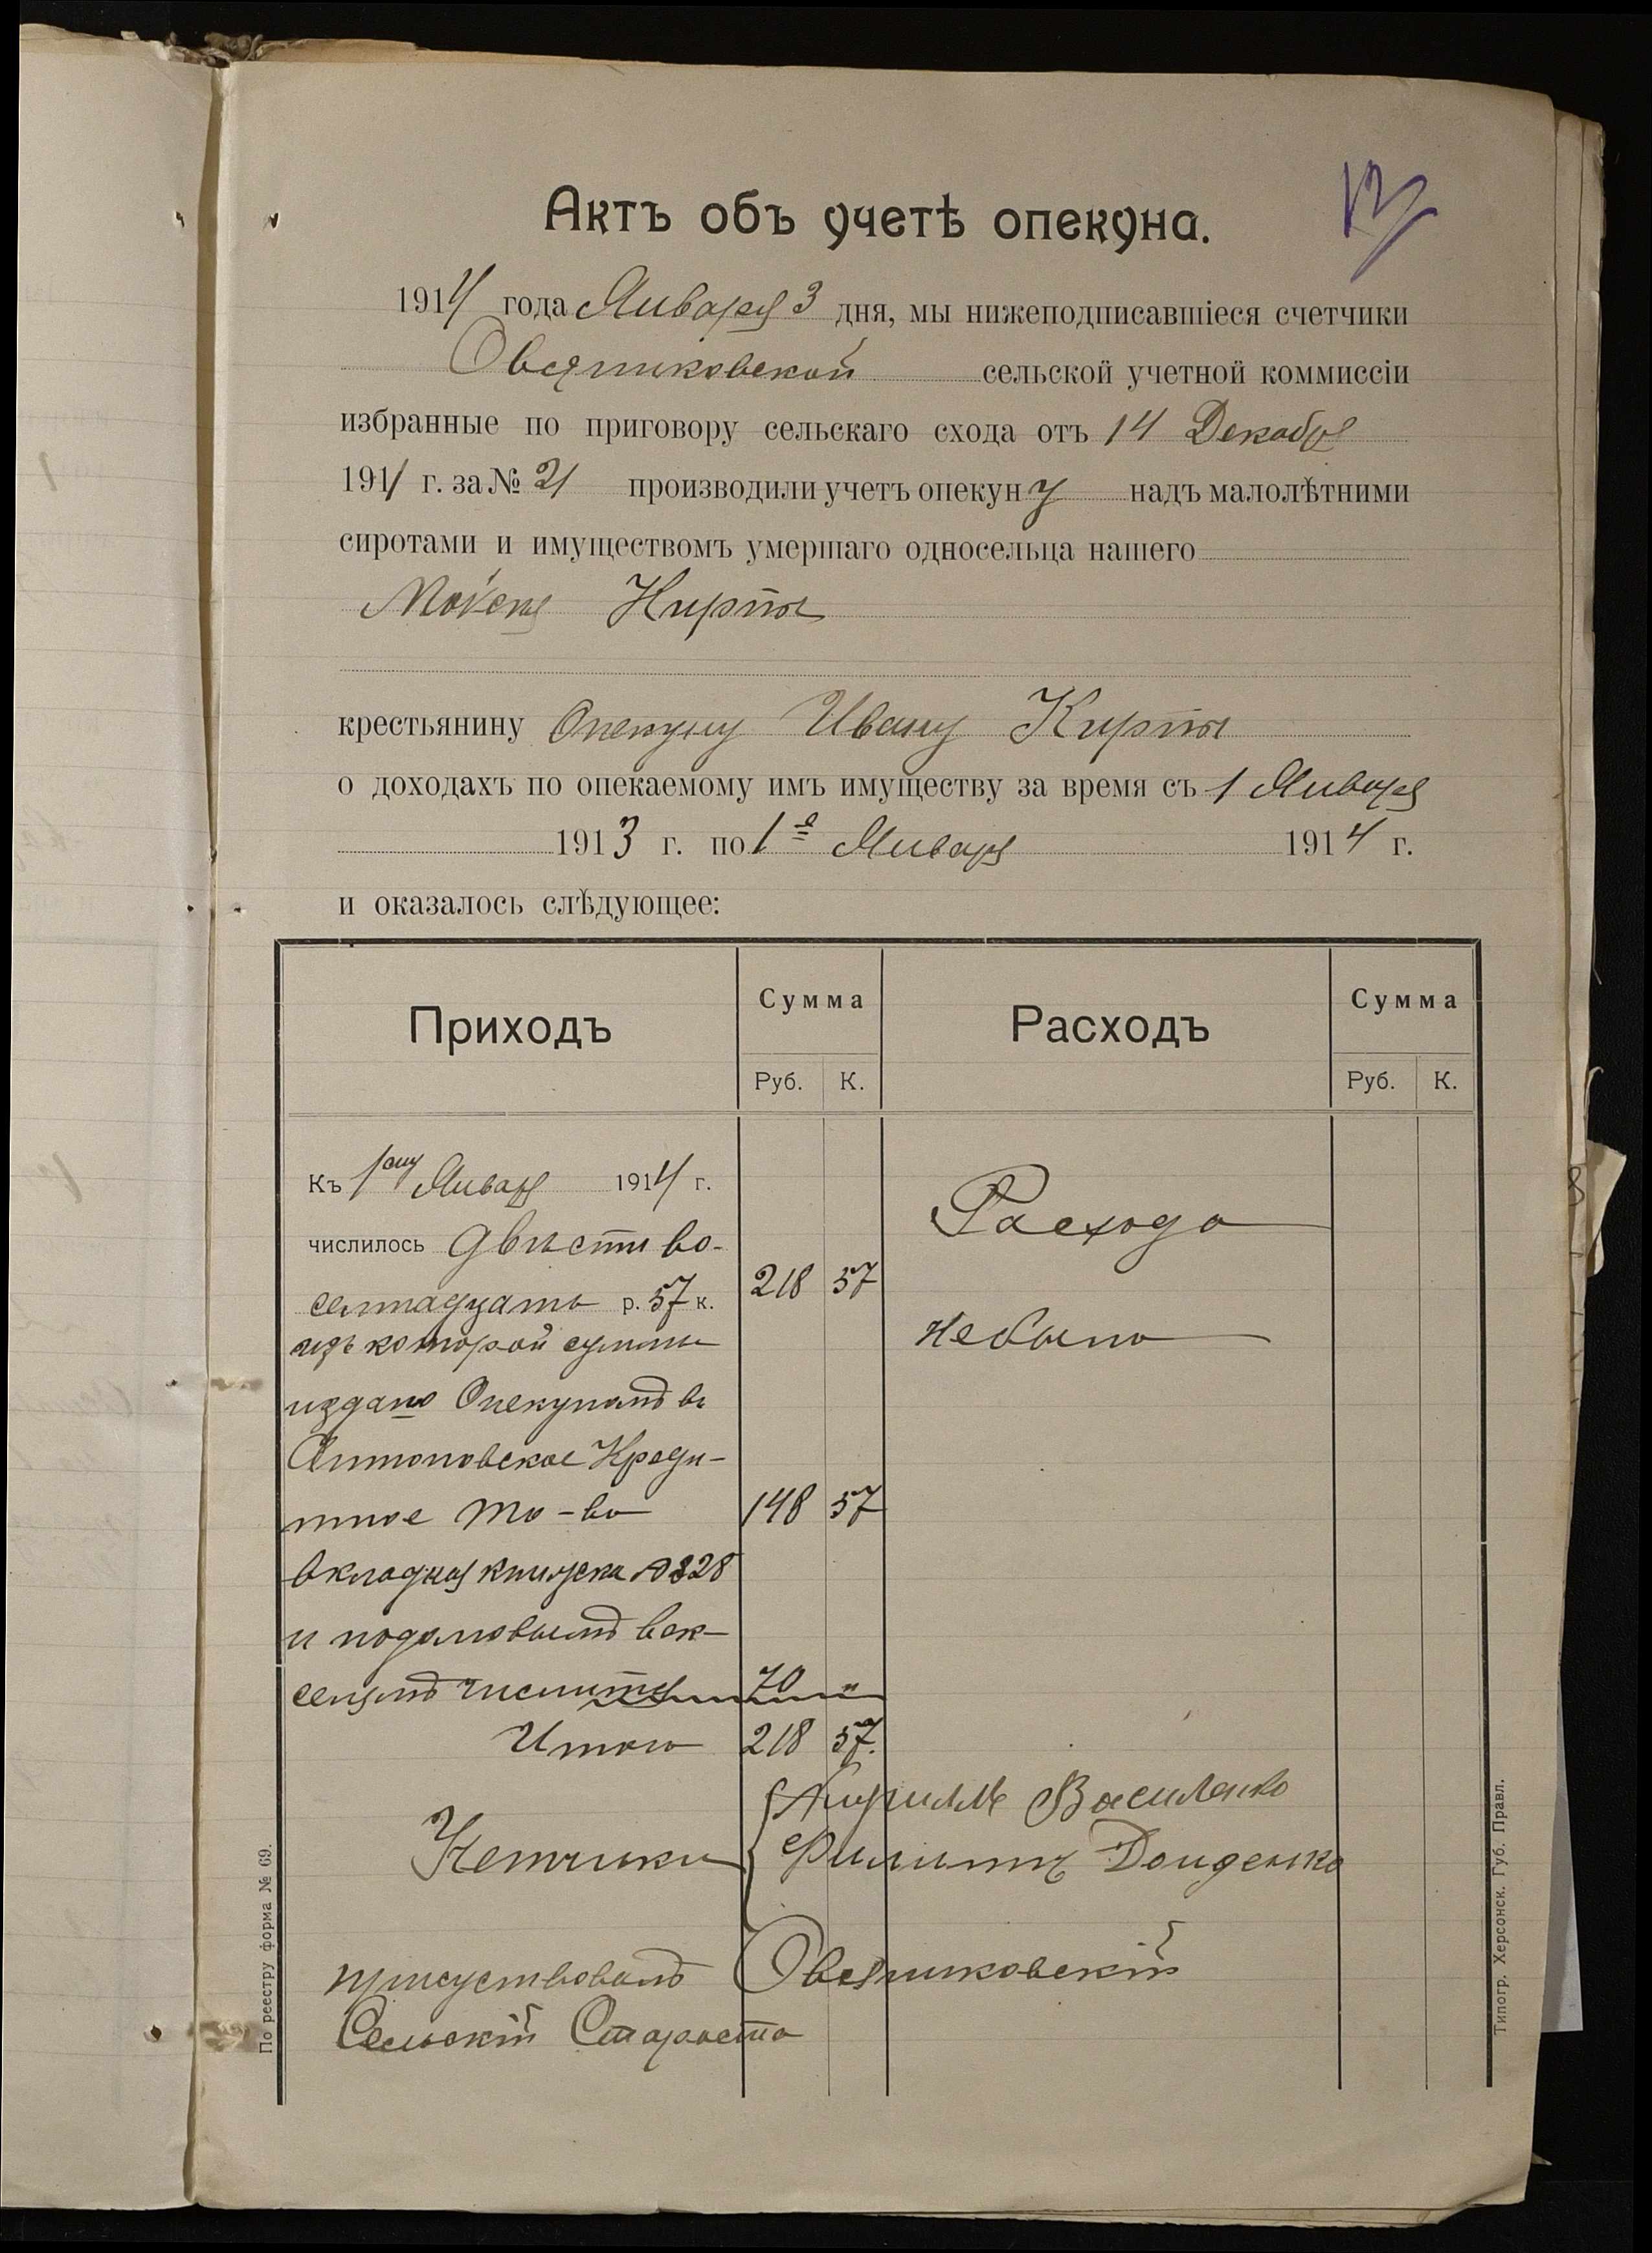 Актъ объ учетѣ опекуна.
1914 года Января 3 дня, мы нижеподписавшіеся счетчики
Овсяниковской сельской учетной коммиссіи
избранные по приговору сельскаго схода отъ 14 Декабря
1911 г. за № 21 производили учетъ опекуну надъ малолѣтними
сиротами и имуществомъ умершаго односельца нашего
Моисея Кирпы
крестьянину Опекуну Ивану Кирпы
о доходахъ по опекаемому имъ имуществу за время съ 1 Января
1913 г. по 1е Января 1914 г.
и оказалось слѣдующее:
Приходъ Сумма Расходъ Сумма
Руб. К. Руб. К.
Къ 1ому Января 1914 г.
Расхода
числилось двѣсти во-
семнадцать р. 57 к. 218 57
небыло
изъ которой суммы
издано Опекуномъ въ
Антоновское Креди-
тное то-во 148 57
вкладная книжка № 328
и подомовымъ век-
селямъ числится 70 "
Итого 218 57.
Учетчики
Кириллъ Василенко
Филиппъ Донденко
присуствовалъ Овсяниковскій
Сельскій Староста
По реестру форма № 69.
Типогр. Херсонск. Губ. Правл.